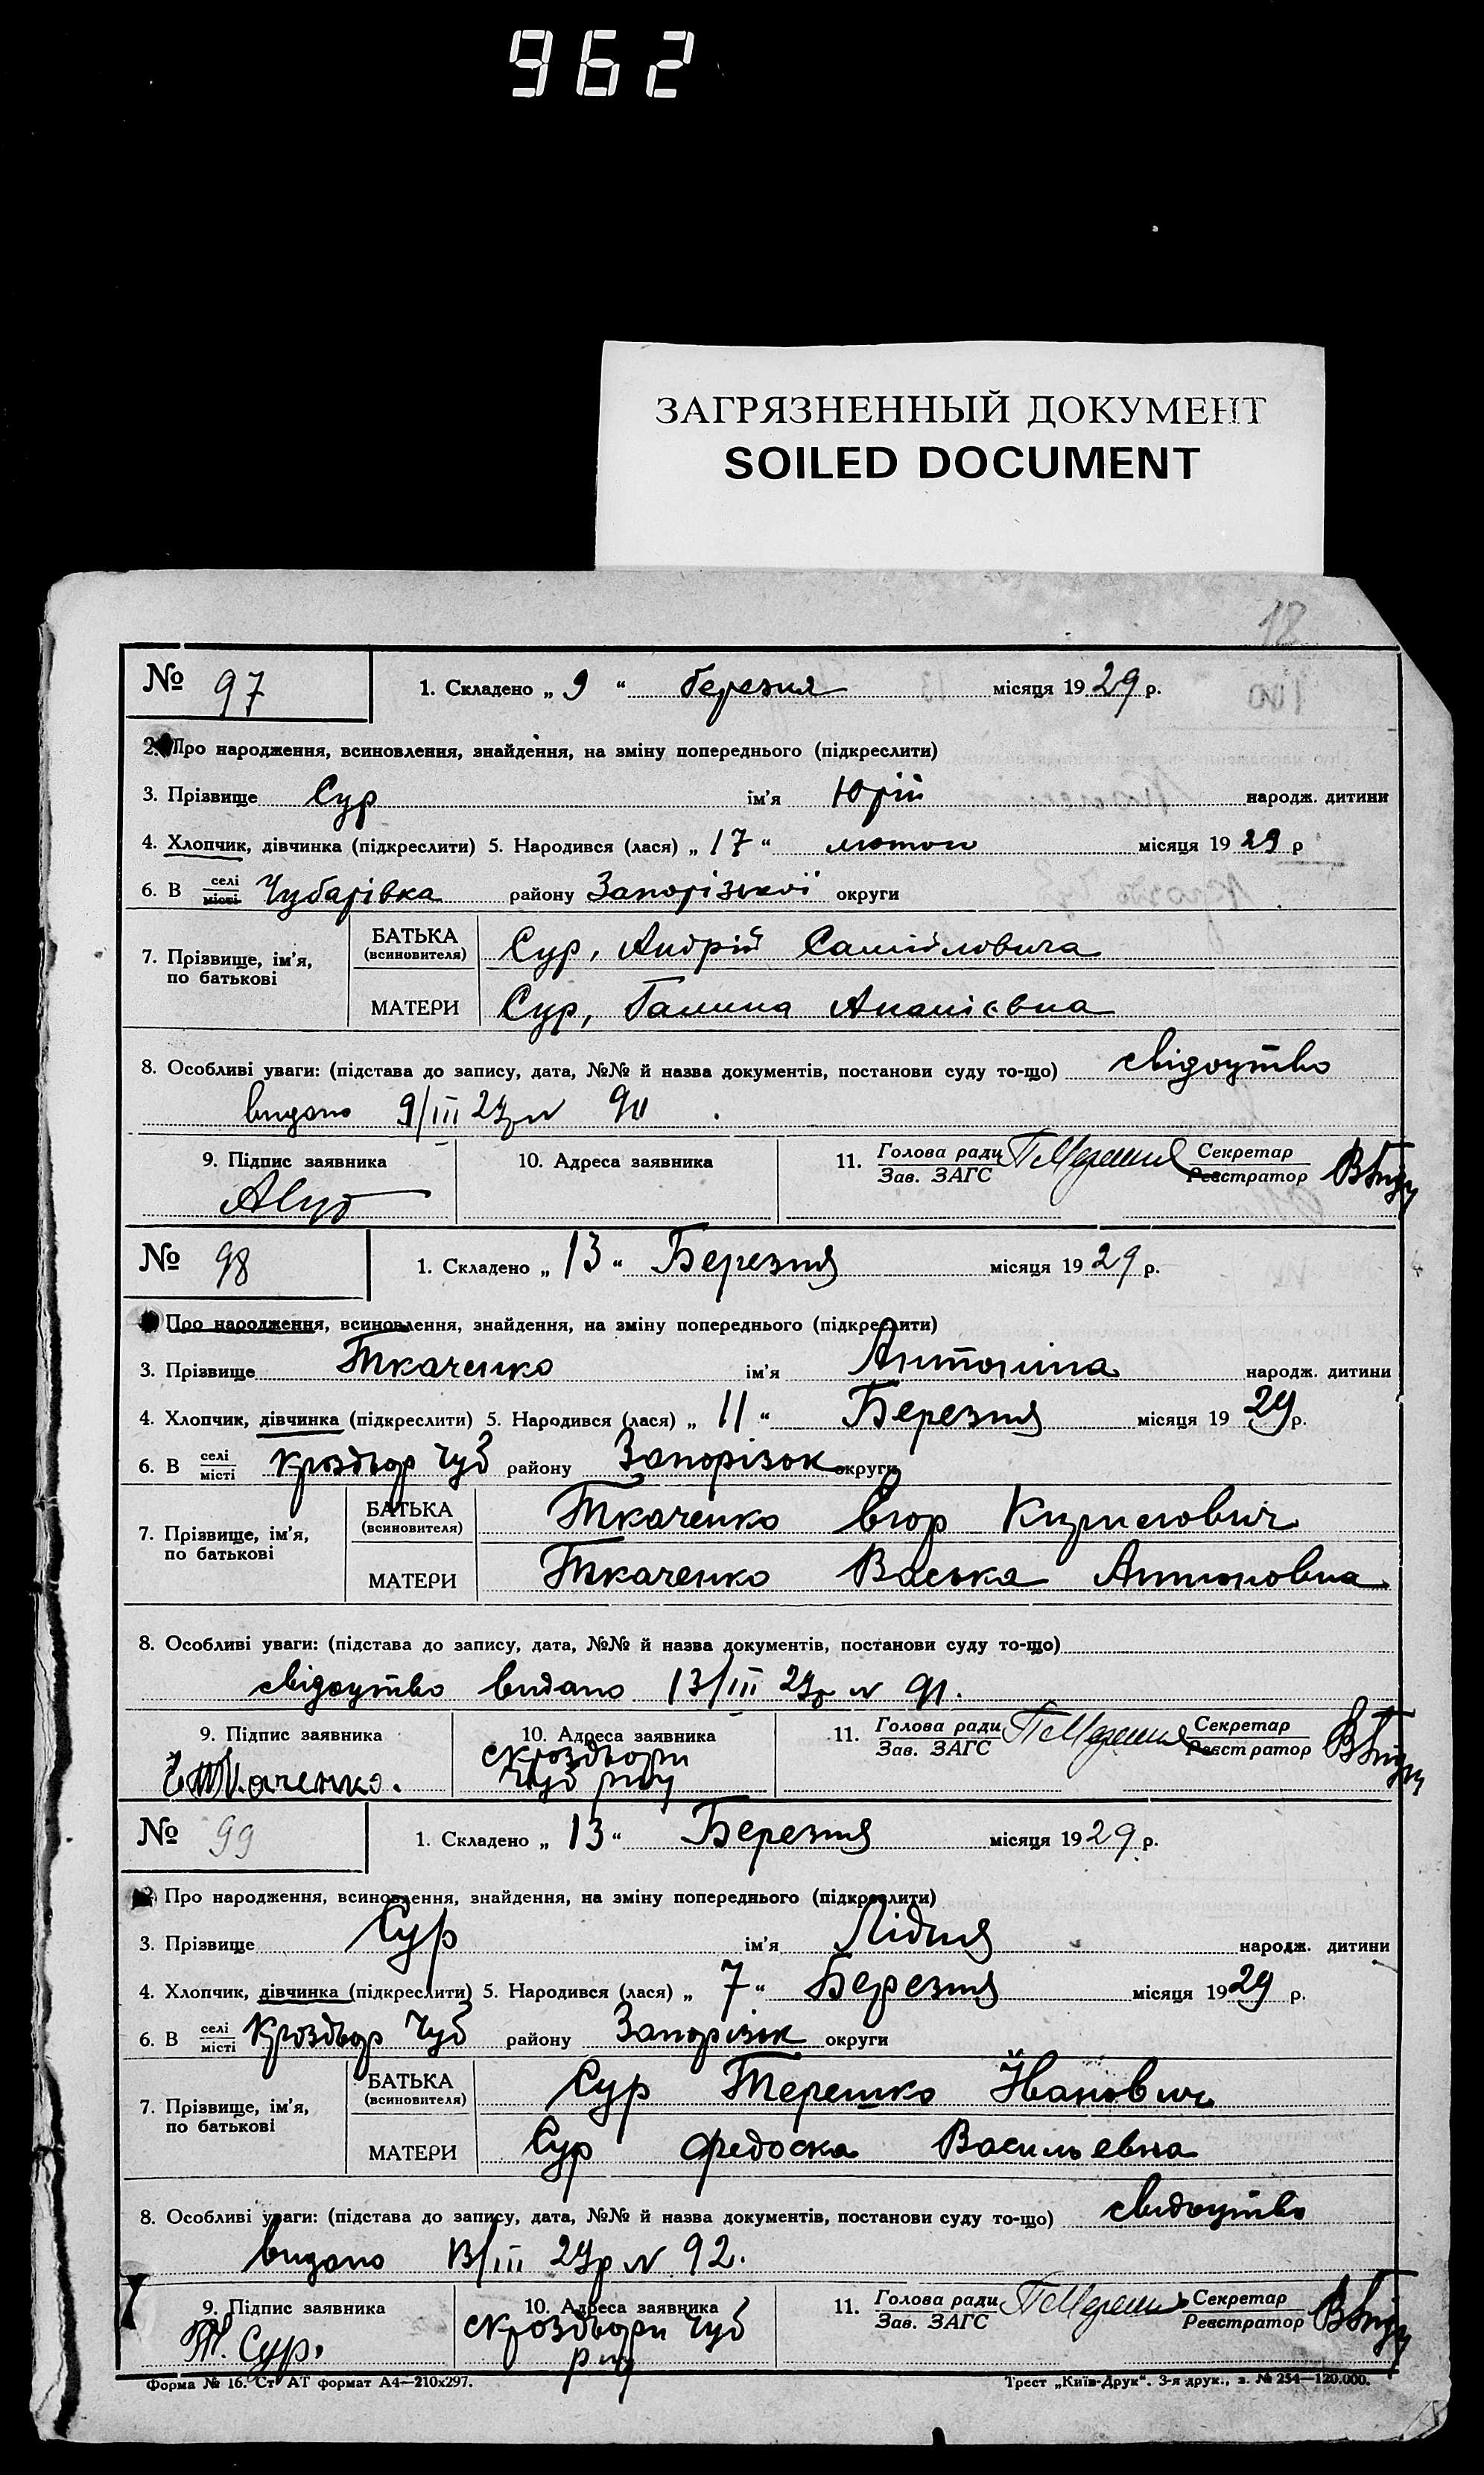 962
ЗАГРЯЗНЕННЫЙ ДОКУМЕНТ
SOILED DOCUMENT
18
№ 97 1. Складено „ 9 “ березня місяця 1929 р.
2. Про народження, всиновлення, знайдення, на зміну попереднього (підкреслити)
3. Прізвище Сур ім'я Юрій народж. дитини
4. Хлопчик, дівчинка (підкреслити) 5. Народився (лася) „ 17 “ лютого місяця 1929 р
6. В селі місті Чубарівка району Запорізької округи
7. Прізвище, ім'я, по батькові БАТЬКА (всиновителя) Сур, Андрій Самійловича
МАТЕРИ Сур, Галина Ананієвна
8. Особливі уваги: (підстава до запису, дата, №№ й назва документів, постанови суду то-що) свідоцтво
видано 9/III 29р N 90
9. Підпис заявника 10. Адреса заявника 11. Голова ради Зав. ЗАГС Секретар Реєстратор
№ 98 1. Складено „ 13 “ Березня місяця 1929 р.
Про народження, всиновлення, знайдення, на зміну попереднього (підкреслити)
3. Прізвище Ткаченко ім'я Антоніна народж. дитини
4. Хлопчик, дівчинка (підкреслити) 5. Народився (лася) „ 11 “ Березня місяця 1929 р.
6. В селі місті Кроздвор Чуб району Запорізьк округи
7. Прізвище, ім'я, по батькові БАТЬКА (всиновителя) Ткаченко Єгор Кирилович
МАТЕРИ Ткаченко Васька Антоновна
8. Особливі уваги: (підстава до запису, дата, №№ й назва документів, постанови суду то-що)
свідоцтво видано 13/III 29р N 91.
9. Підпис заявника 10. Адреса заявника 11. Голова ради Зав. ЗАГС Секретар Реєстратор
Є Ткаченко. Чуб р-ну
№ 99 1. Складено „ 13 “ Березня місяця 1929 р.
2. Про народження, всиновлення, знайдення, на зміну попереднього (підкреслити)
3. Прізвище Сур ім'я Лідия народж. дитини
4. Хлопчик, дівчинка (підкреслити) 5. Народився (лася) „ 7 “ Березня місяця 1929 р.
6. В селі місті Кроздвор Чуб району Запорізьк округи
7. Прізвище, ім'я, по батькові БАТЬКА (всиновителя) Сур Терешко Йванович
МАТЕРИ Сур Федоска Васильевна
8. Особливі уваги: (підстава до запису, дата, №№ й назва документів, постанови суду то-що) свидоцтво
видано 13/III 29р N 92.
9. Підпис заявника 10. Адреса заявника 11. Голова ради Зав. ЗАГС Секретар Реєстратор
Т. Сур. Чуб
р-ну
Форма № 16. Ст АТ формат А4—210x297. Трест „Київ-Друк“. 3-я друк., з. № 254—120.000.